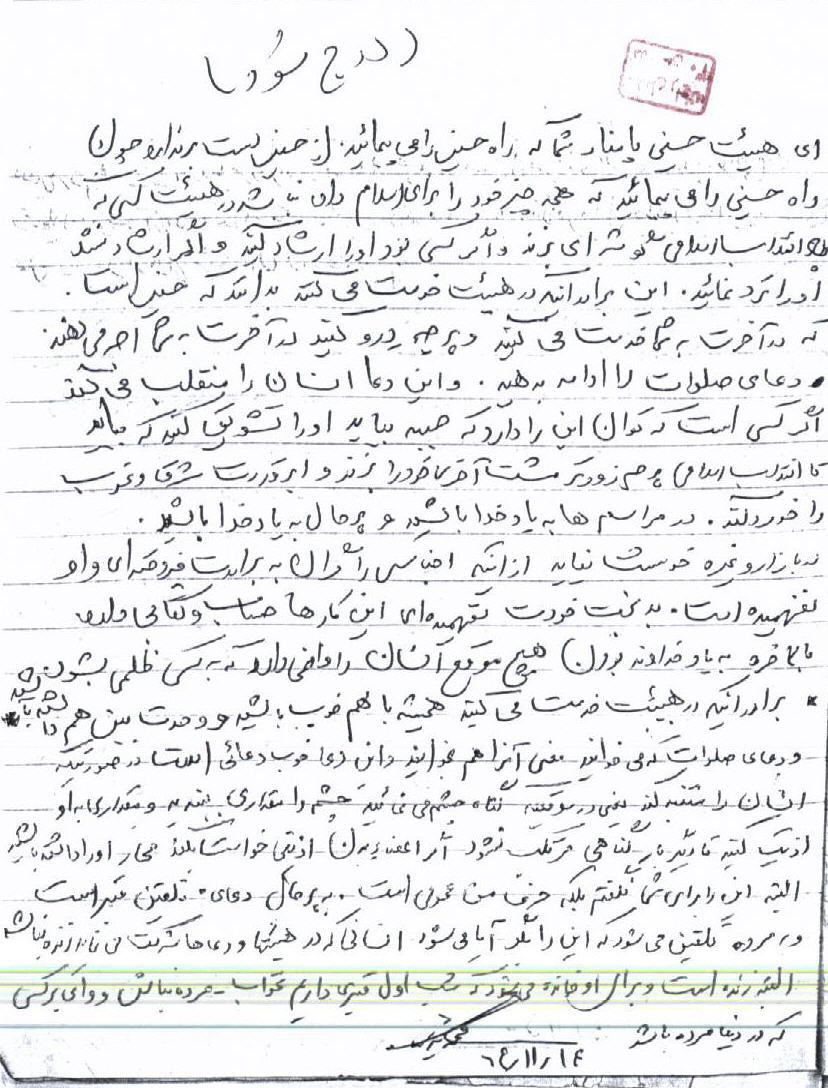 درج شود
ای هیئت حسینی پا بنهاد شما که راه حسین را می پیمائید. از حسین دست برندارید چون
راه حسینی را می پیمائید که همه چیز خود را برای اسلام داد. در هیئت کسی که
انقلاب اسلامی ای بزند و اگر کسی بود او را ارشاد کنید و اگر ارشاد نشد
او را ترد نمائید. این برادرانیکه در هیئت خدمت می کنند بدانند که حسین است.
که در آخرت به شما خدمت می کنند و هر چه درو کنید در آخرت به شما اجر می دهند.
دعای صلوات را ادامه بدهید. و این دعا انسان را منقلب می کند
اگر کسی است که توان این را دارد که جبهه بیاید او را تشویق کنید که بیاید
تا انقلاب اسلامی هر چه زودتر مشت آخر خود را بزند و ابرقدرت شرق و غرب
را خورد کند. در مراسم ها به یاد خدا باشید و هر حال به یاد خدا باشید.
در بازار و غیره خوشت نیاید از اینکه اجناسی را گران به برادرت فروخته ای و او
نفهمیده است. به نفست خودت نفهمیده ای این کارها حساب و کتابی دارد
بالاخره به یاد خداوند بودن هیچ موقع انسان را وا نمی دارد که به کسی ظلمی بشود
* برادرانیکه در هیئت خدمت می کنید همیشه با هم خوب باشید و وحدت بین هم داشته باشید
و دعای صلوات که می خوانید معنی آنرا هم بخوانید و این دعا خوب دعائی است در صورتیکه
انسان را متنبه کند یعنی در موقعیکه گناه چشم می نمائید چشم را مقداری ببندید و مقداری به او
اذیت کنید تا دیگر بار گناهی مرتکب نشود اگر اعضاء بدن اذیتی خواست بکند مجازات او را داشته باشید
البته این را برای شما نگفتم بلکه حرف من عمومی است. به هر حال دعای تلقین میت است
و به مرده تلقین می شود که این را بگو آیا می شود انسانی که در هیئتها و دعاها شرکت می نماید زنده نباشد
البته زنده است و برای او خوانده می شود که شب اول قبری داریم بخواب مرده نباش و وای بر کسی
که در دنیا مرده باشد
۶۴/۱۱/۱۶